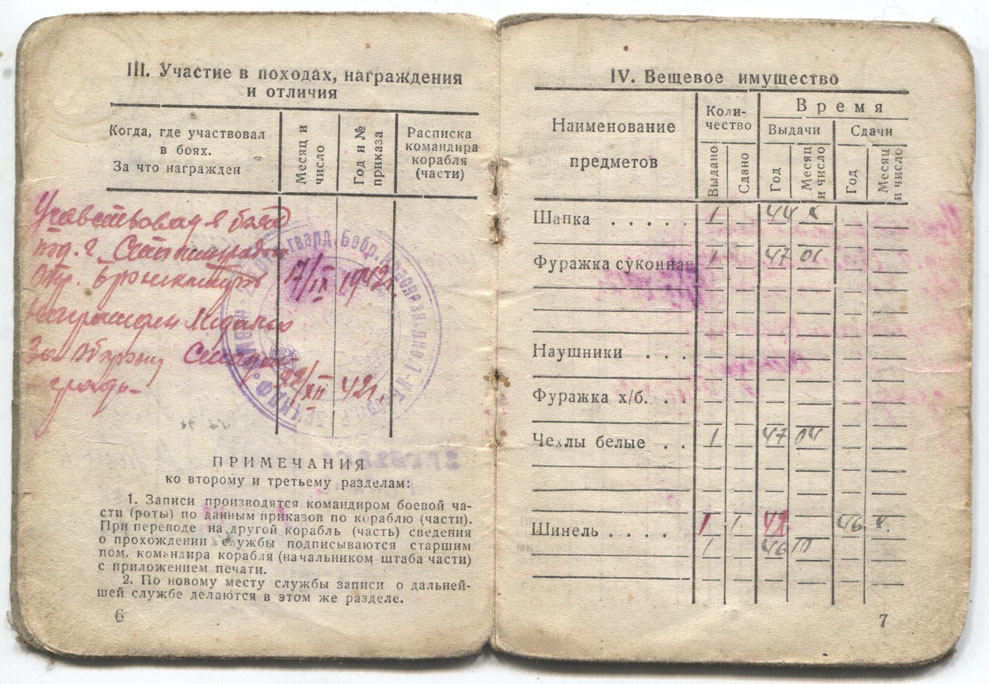 III. Участие в походах, награждения
и отличия
Когда, где участвовал
в боях.
За что награжден
Месяц и
число
Год и №
приказа
Расписка
командира
корабля
(части)
Участвовал в боях
под г.
17/IX 1942 г.
Награжден Медалью
За Оборону Сталин
22/XII 42 г.
града
ПРИМЕЧАНИЯ
ко второму и третьему разделам:
1. Записи производятся командиром боевой ча-
сти (роты) по данным приказов по кораблю (части).
При переводе на другой корабль (часть) сведения
о прохождении службы подписываются старшим
пом. командира корабля (начальником штаба части)
с приложением печати.
2. По новому месту службы записи о дальней-
шей службе делаются в этом же разделе.
6
IV. Вещевое имущество
Наименование
предметов
Коли-
чество
Время
Выдачи
Сдачи
Выдано
Сдано
Год
Месяц
и число
Год
Месяц
и число
Шапка . . . . 1 44 X
Фуражка суконная 1 47 01
Наушники . . .
Фуражка х/б. . .
Чехлы белые . . 1 47 04
Шинель . . . . 1 1 42 46 X.
1 46 III
7